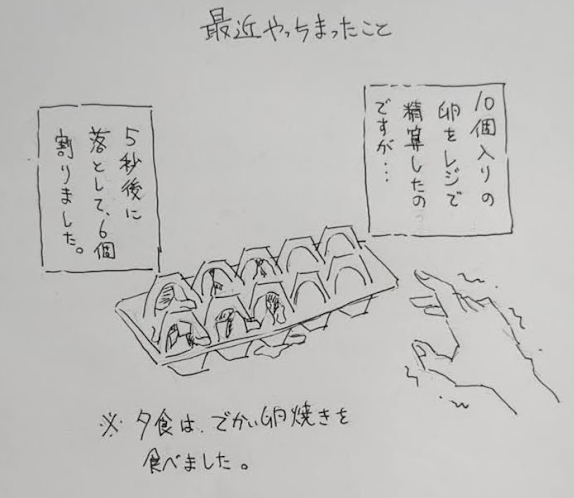 最近やっちまったこと
10個入りの
卵をレジで
精算したの
ですが…
5秒後に
落として、6個
割りました。
※ 夕食は、でかい卵焼きを
食べました。